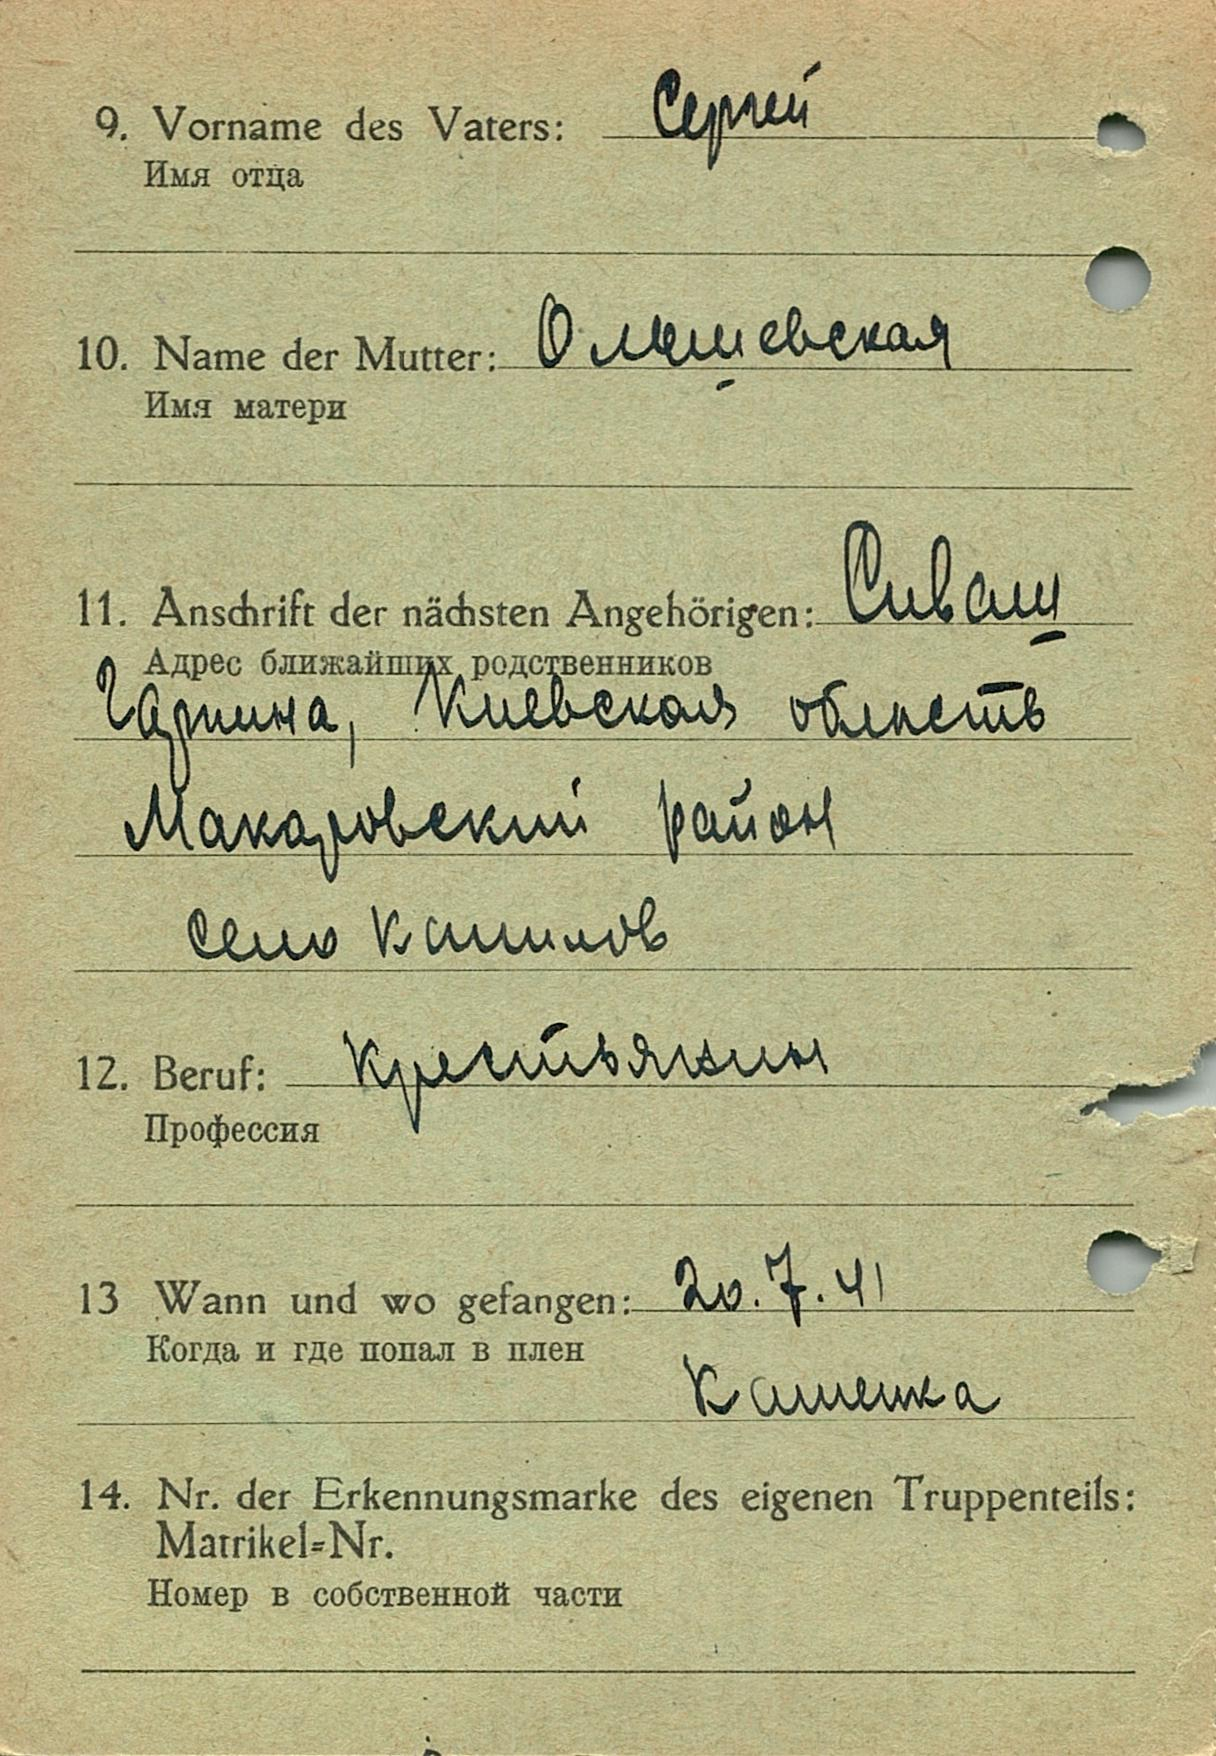 9. Vorname des Vaters: Сергей
Имя отца
10. Name der Mutter: Олышевская
Имя матери
11. Anschrift der nächsten Angehörigen: Сиваш
Адрес ближайших родственников
Киевская область
Макаровский район
село
12. Beruf: крестьянин
Профессия
13 Wann und wo gefangen: 20.7.41
Когда и где попал в плен
14. Nr. der Erkennungsmarke des eigenen Truppenteils:
Matrikel=Nr.
Номер в собственной части